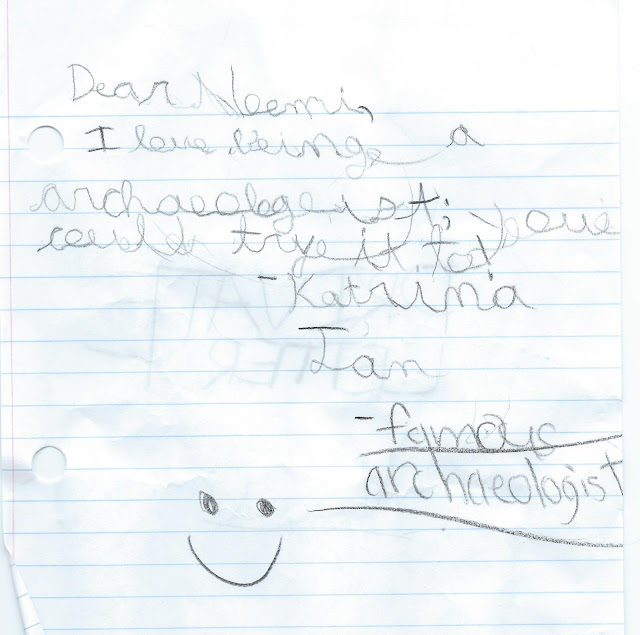 Dear Neemi,
I love beinge a
archaeologeist; youe
could trye it to!
-Katrina
Ian
-famous
archaeologist